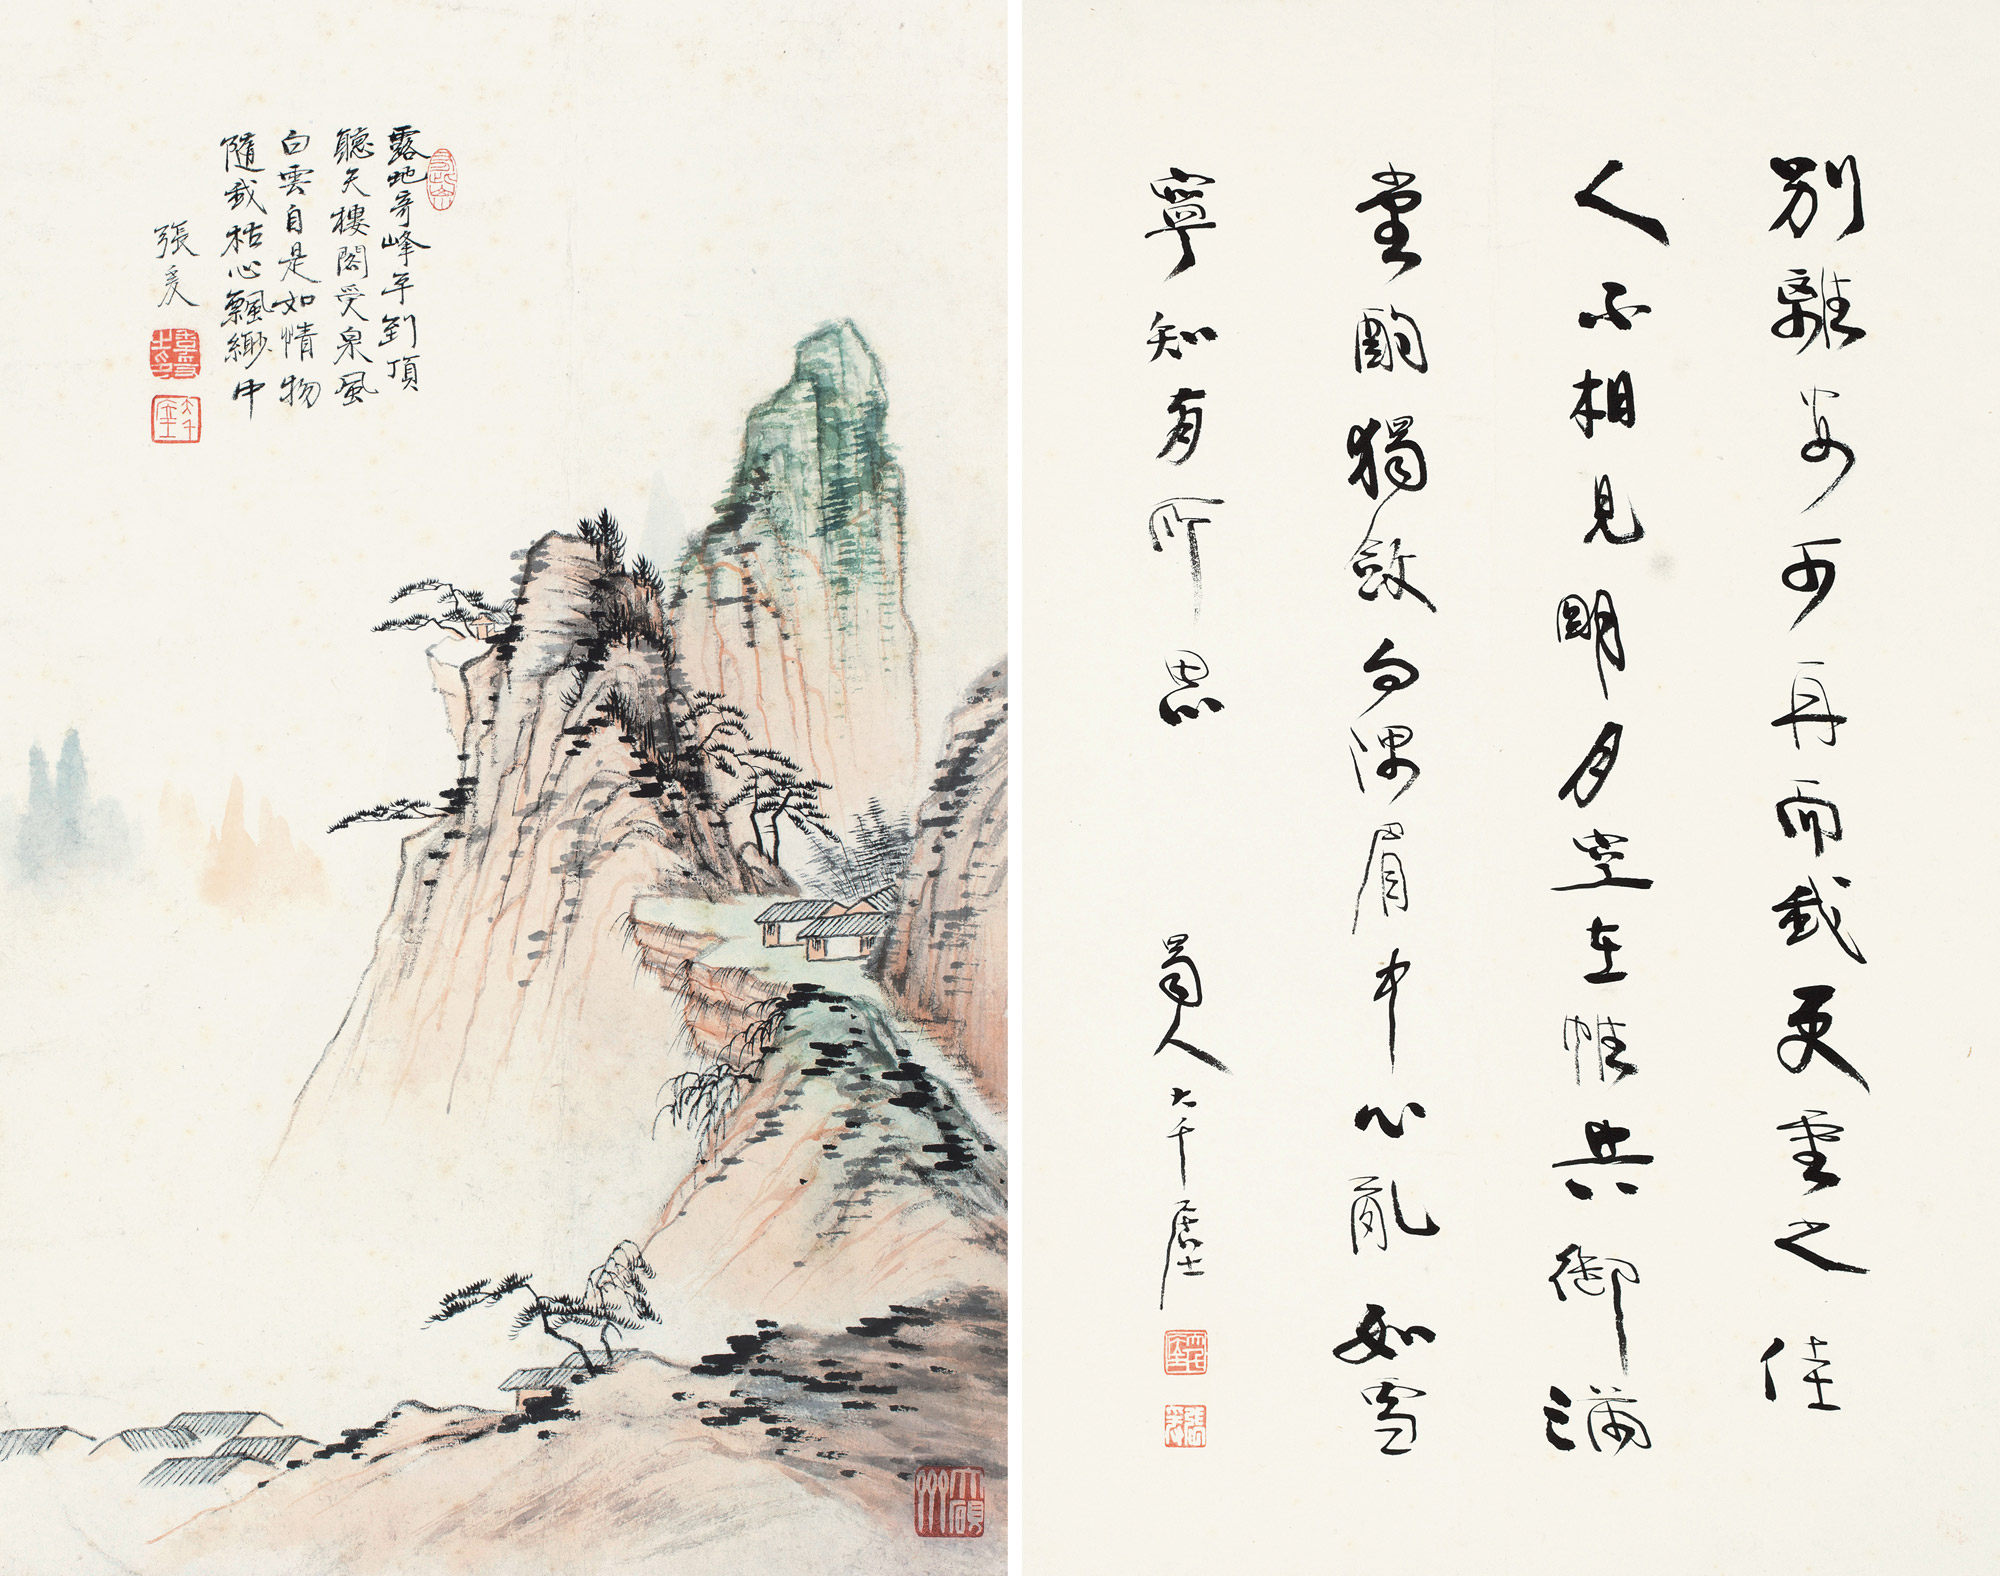 露地奇峰平到頂
聽天樓閣受泉風
白雲自是如情物
隨我枯心飄緲中
張爰
別離安可再而我更重之佳
人不相見明月空在帷共御滿
堂酌獨斂向隅眉中心亂如雪
寧知有所思
蜀人大千居士